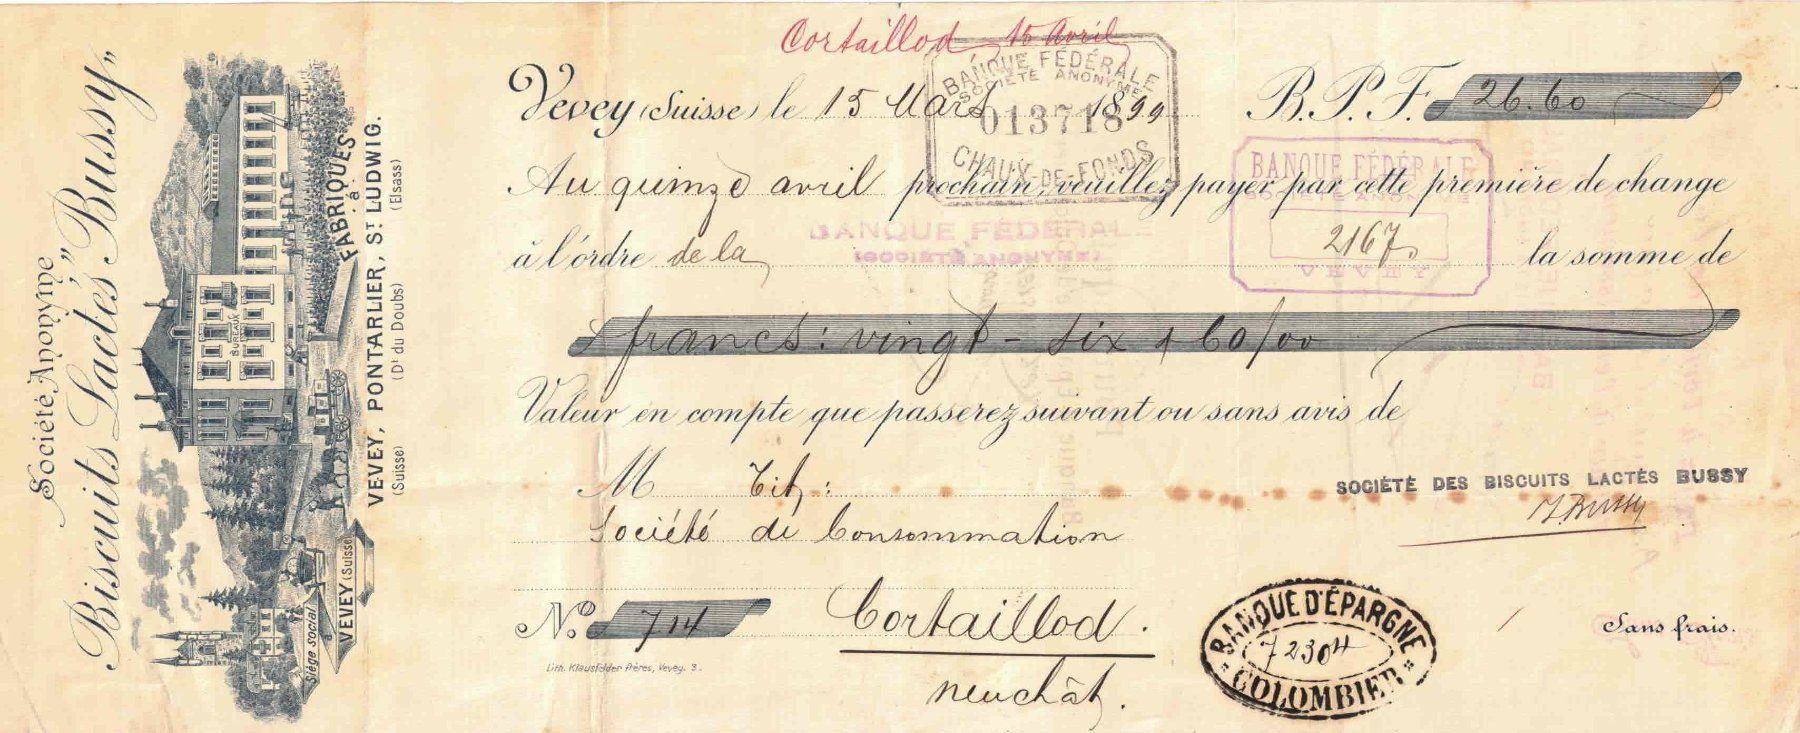 Société Anonyme
Biscuits Lactés "Bussy"
FABRIQUES
à
VEVEY, PONTARLIER, ST LUDWIG.
(Suisse) (Dt du Doubs) (Elsass)
BUREAUX
Siège social
à
VEVEY (Suisse)
Cortaillod 15 Avril
Vevey (Suisse) le 15 Mars 1899 B.P.F. 26.60
BANQUE FÉDÉRALE
SOCIÉTÉ ANONYME
013718
CHAUX-DE-FONDS
Au quinze avril prochain, veuillez payer par cette première de change
à l'ordre de la la somme de
BANQUE FÉDÉRALE
(SOCIÉTÉ ANONYME)
BANQUE FÉDÉRALE
SOCIÉTÉ ANONYME
2167
VEVEY
francs: vingt-six & 60/00
Valeur en compte que passerez suivant ou sans avis de
M Tit:
Société de Consommation
SOCIÉTÉ DES BISCUITS LACTÉS BUSSY
Bussy
No. 714 Cortaillod.
neuchât.
Lith. Klausfelder Frères, Vevey. 3.
BANQUE D'ÉPARGNE
72304
COLOMBIER
Sans frais.